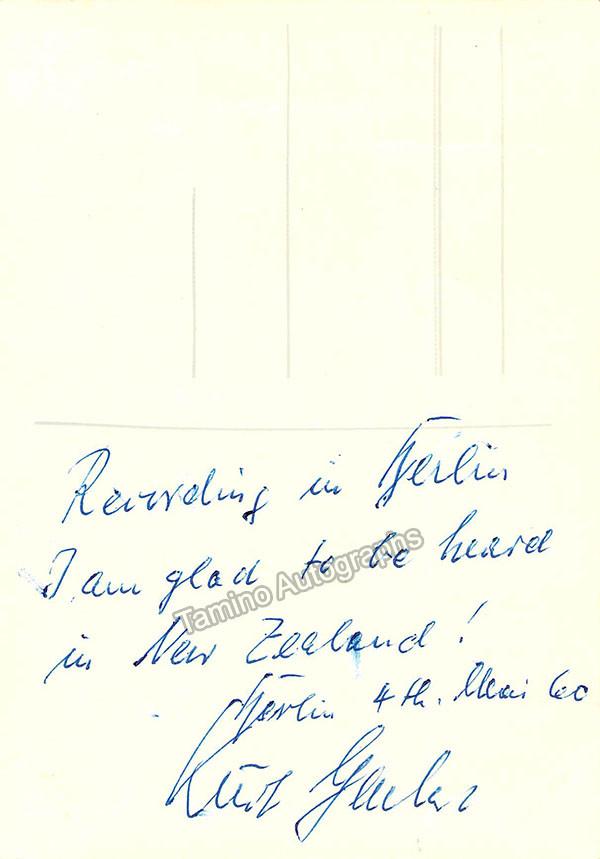 Recording in Berlin
I am glad to be heard
Tamino Autographs
in New Zealand!
Berlin 4th. Mai 60
Kurt